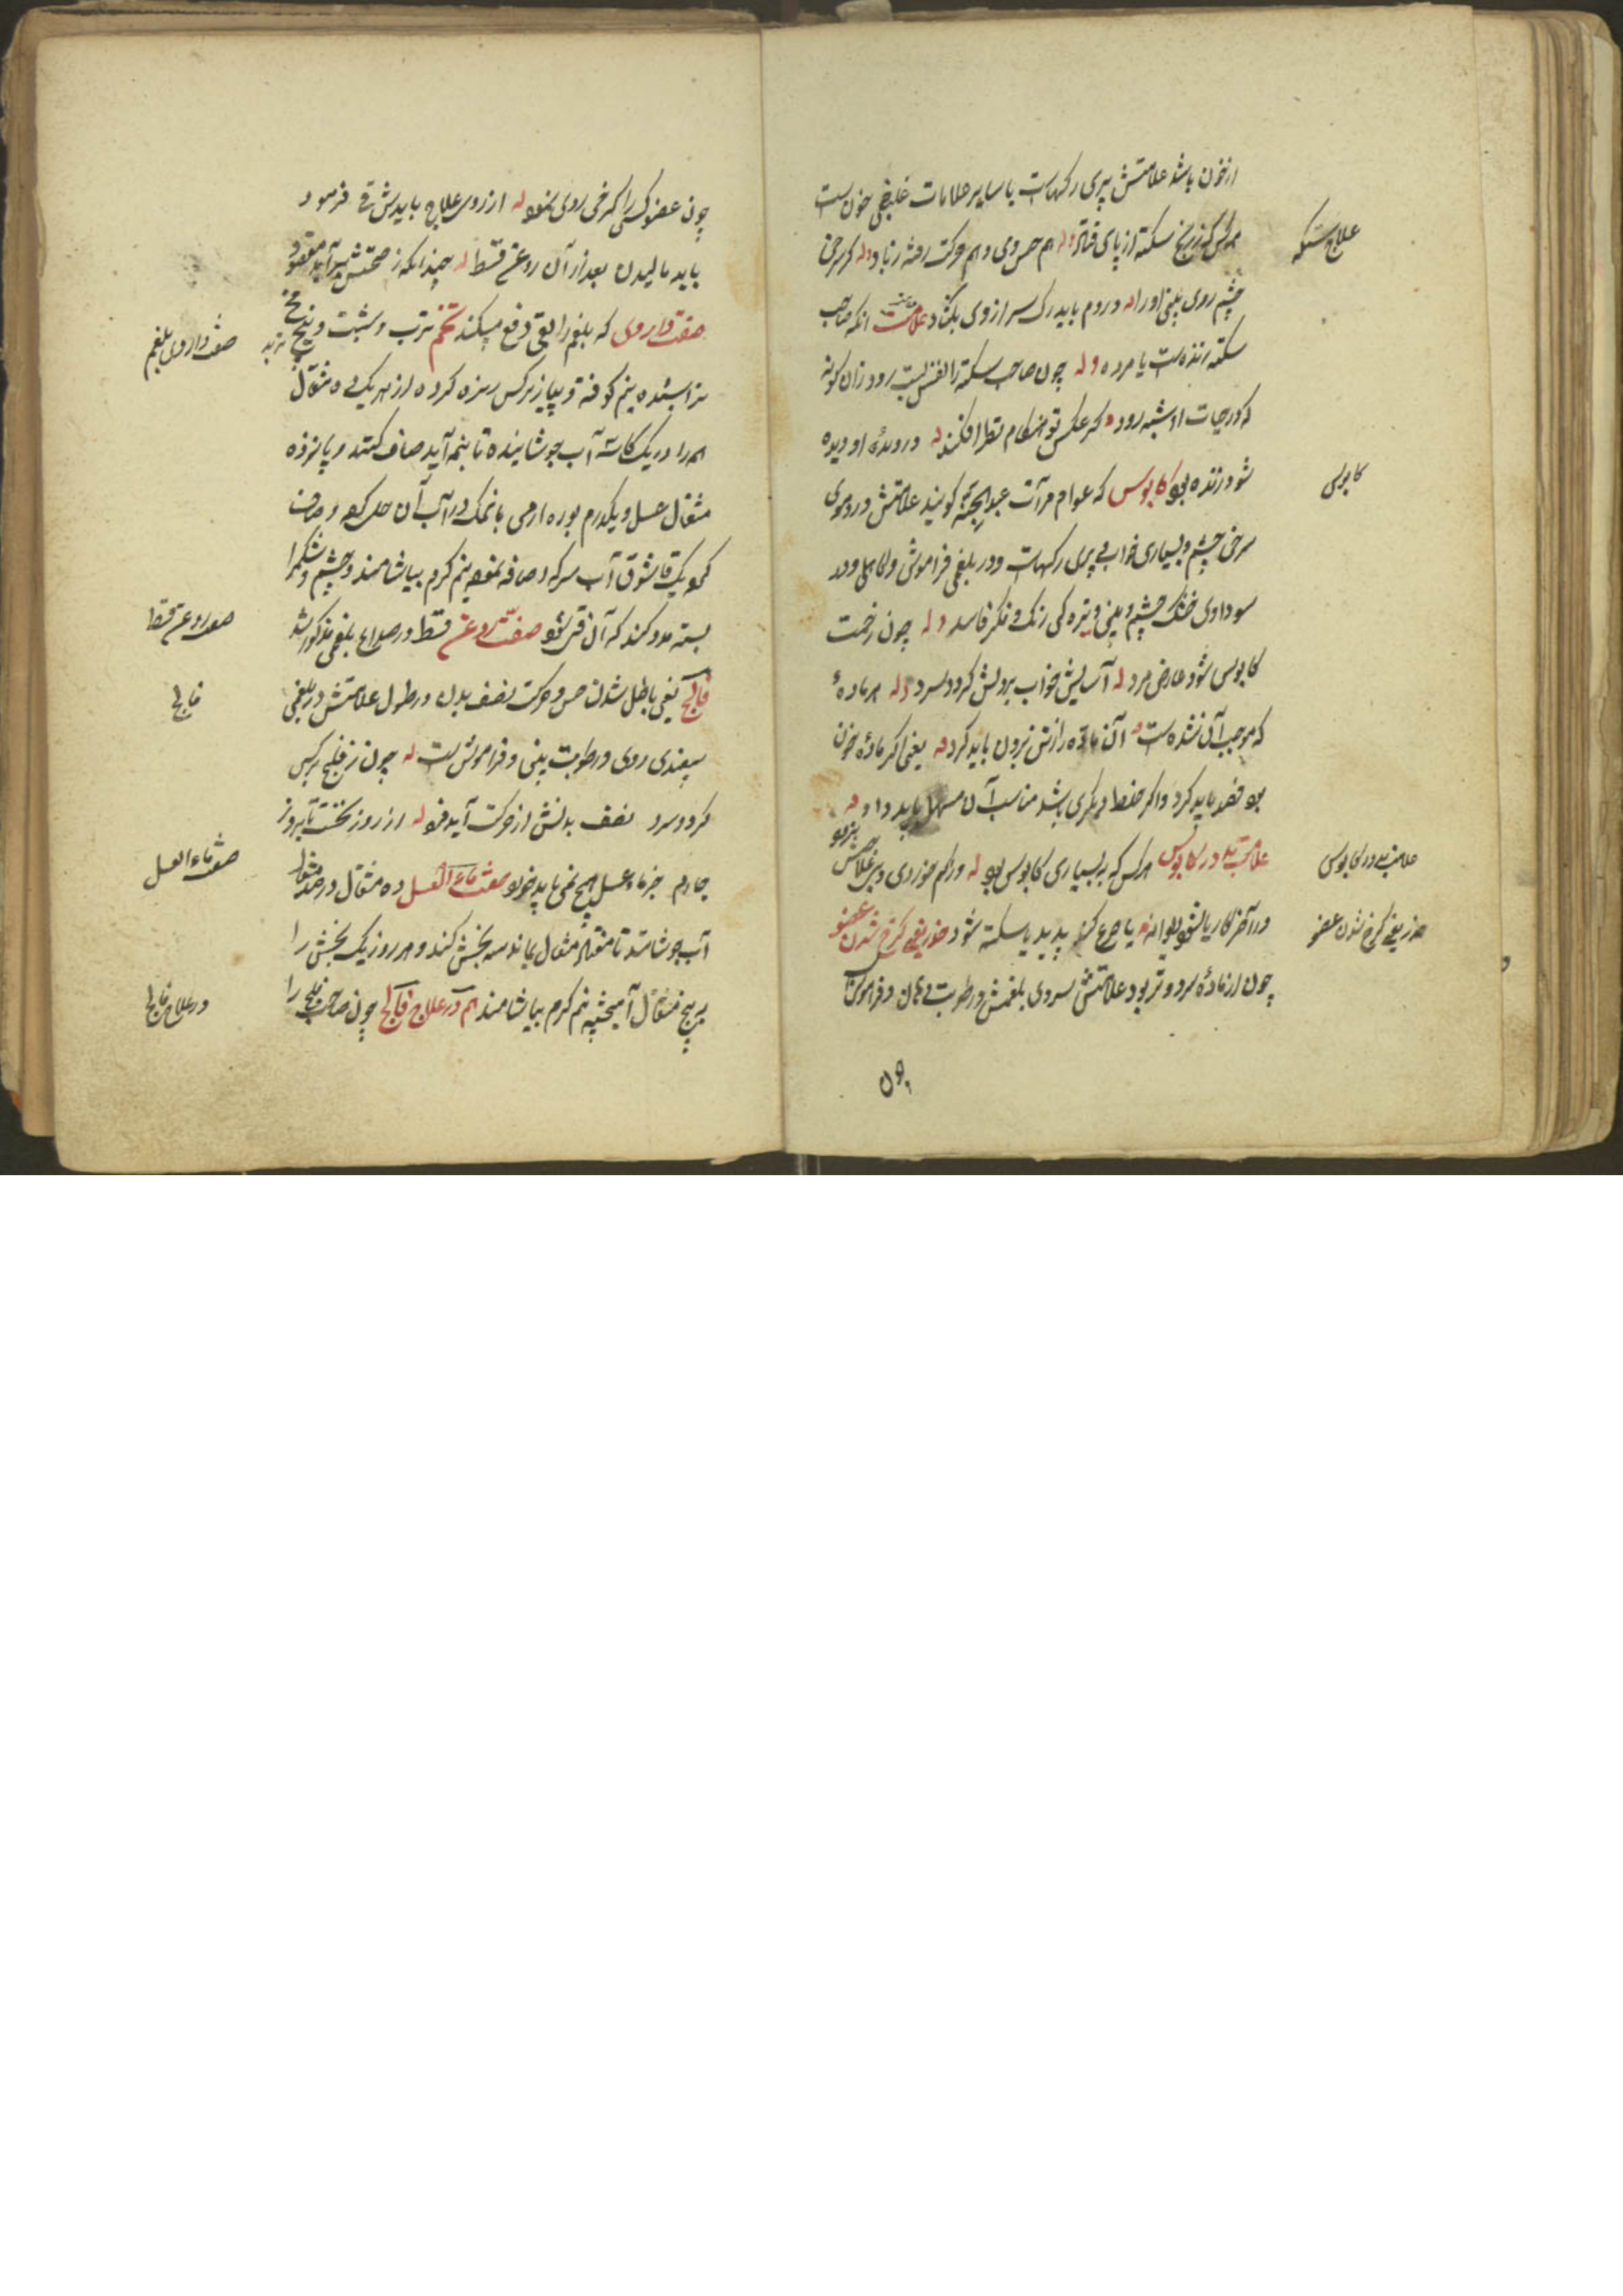 از خون باشد علامتش پری رگهاست با سایر علامات غلبهٔ خون است
علاج سکته
هر کس که ز رنج سکته از پای فتاد هم حس وی و هم حرکت رفته ز یاد گر سرخی
چشم و روی بینی او را در دم باید رگ سر از وی بگشاد علامت آنکه صاحب
سکته زنده است یا مرده چون صاحب سکته را نفس بست رود زان گونه
که در حیات او شبهه رود گر عکس تو هنگام نظر افکندن در دیدهٔ او دیده
شود زنده بود کابوس که عوام مرآن را عبد الجنه گویند علامتش در دموی
کابوس
سرخی چشم و بسیاری خواب و پری رگهاست و در بلغمی فراموشی و کاهلی و در
سوداوی خشکی چشم و بینی و تیرگی رنگ و فکر فاسد چون زحمت
کابوس شود عارض مرد آسایش خواب بر دلش گردد سرد هر مادهٔ
که موجب آن شده است آن ماده را ز تن برون باید کرد یعنی اگر مادهٔ خون
بود فصد باید کرد و اگر خلط دیگری باشد مناسب آن مسهل باید داد
علامت بد در کابوس هر کس که به بسیاری کابوس بود ور کم خوردی
علامت بد در کابوس
در آخر کار یا شود دیوانه یا صرع کند پدید یا سکته شود خدر یعنی کرخ شدن عضو
خدر یعنی کرخ شدن عضو
چون از مادهٔ سرد و تر بود علامتش سردی ملمس و رطوبت دهان و فراموشی
چون
چون عضو کسی را کرخی روی نمود از روی علاج بایدش قی فرمود
باید مالیدن بعد از آن روغن قسط چندانکه ز صحتش برآید مقصود
صفت داروی که بلغم را بقی دفع میکند تخم ترب و شبت و بیخ
صفت داروی بلغم
تراشیده نیم کوفته و پیاز نرگس ریزه کرده از هر یک ده مثقال
همه را در یک کاسه آب جوشانیده تا بنیمه آید صاف کنند و پانزده
مثقال عسل و یکدرم بوره ارمی با نمک در آب آن حل کرده و صاف
کرده یک قاشوق آب سرکه اضافه نموده نیم گرم بیاشامند و چشم و شکم را
بسته مدد کنند که آن قی شود صفت روغن قسط در صداع بلغمی مذکور شد
صفت روغن قسط
فالج یعنی باطل شدن حس و حرکت نصف بدن در طول علامتش در بلغمی
فالج
سپیدی روی و رطوبت بینی و فراموشی است چون رنج فلج بر کس
گردد سرد نصف بدنش از حرکت آید فرد از روز نخست تا بروز
چارم جز ماء عسل هیچ نمی باید خورد صفت ماء العسل ده مثقال در صد مثقال
صفت ماء العسل
آب جوشانند تا هفتاد مثقال بماند سه بخش کنند و هر روز یک بخش را
بپنج مثقال آمیخته نیم گرم بیاشامند هم در علاج فالج چون صاحب فلج را
در علاج فالج